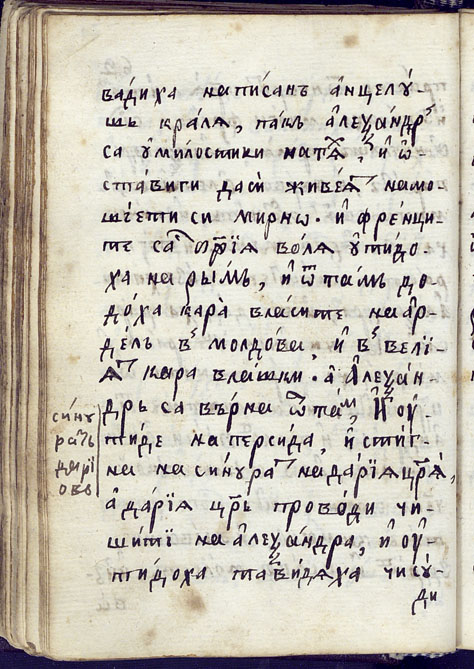 вади́ха напи́санъ а҆нцелꙋ́
шъ кра́лѧ, па́къ а҆леѯа́ндръ
са ᲂу҆ми́лостиви
ста́виги даси́ живе́ѧт намо
ше́ѐти си ми́рнѡ. и҆ фре́нци
те во́лѧ ѿти́до
ха на ры́мъ, и҆ ѿта́мъ до
до́ха кара̀ вла́сите на а҆р
де́лъ в молдо́ва, и҆ в вели́
ѧт кара вла́шки. а҆ А҆леѯа́н
дръ са вѣ́рна ѿта́м, И҆ ѻу҆
ти́де на перси́да, и҆ сти́г
на на си́нура т на да́рїѧ цр҃ѧ̀,
а҆ да́рїѧ цр҃ь прово́ди чи
ши́тї на а҆леѯа́ндра, и҆ ѻу҆
ти́доха та ви́дѧха чисꙋ́
ди
си́нꙋ
ратъ
дарї
овъ